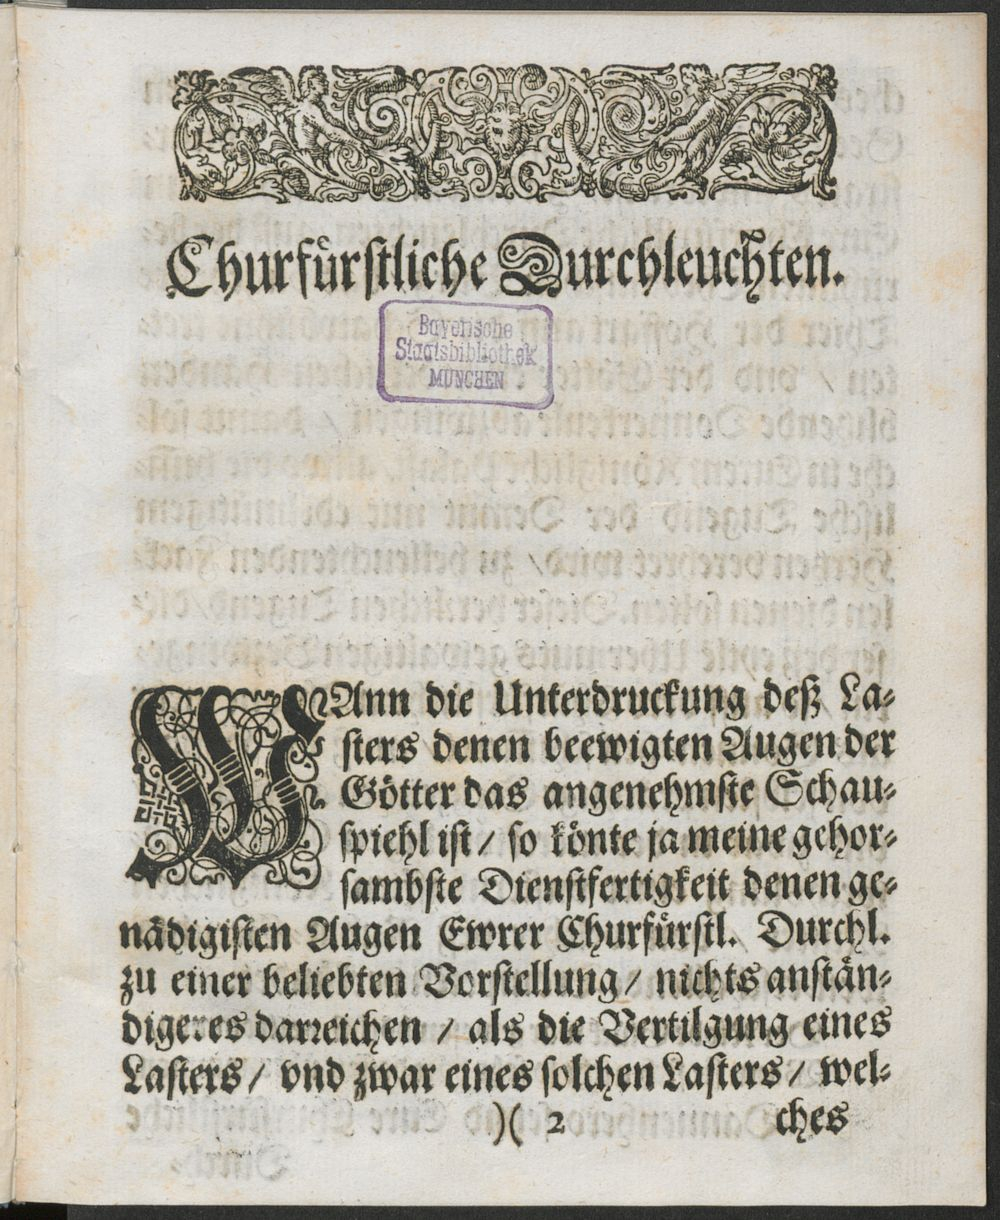 Churfürstliche Durchleuchten.
Bayerische
Staatsbibliothek
MÜNCHEN
WAnn die Unterdruckung deß La-
sters denen beewigten Augen der
Götter das angenehmste Schau-
spiehl ist / so könte ja meine gehor-
sambste Dienstfertigkeit denen ge-
nädigisten Augen Ewrer Churfürstl. Durchl.
zu einer beliebten Vorstellung / nichts anstän-
digeres darreichen / als die Vertilgung eines
Lasters / vnd zwar eines solchen Lasters / wel-
)( 2 ches